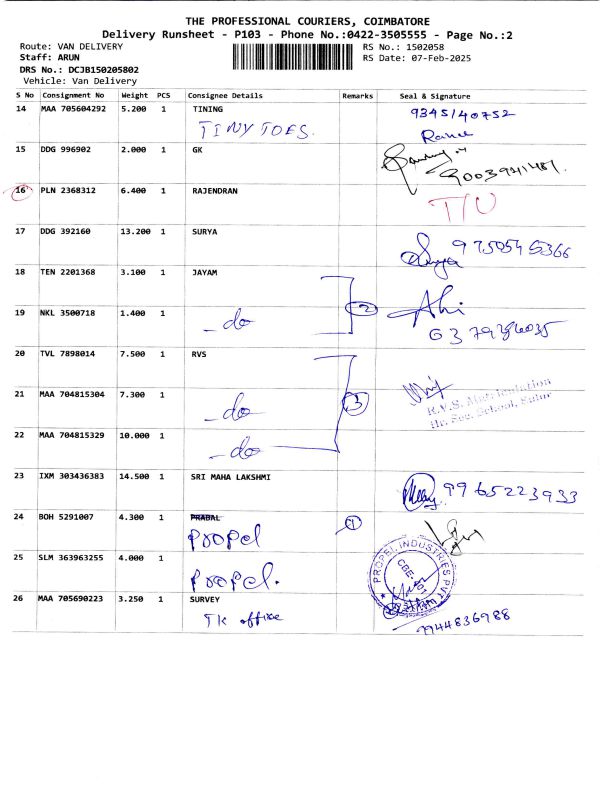 THE PROFESSIONAL COURIERS, COIMBATORE
Delivery Runsheet - P103 - Phone No.:0422-3505555 - Page No.:2
Route: VAN DELIVERY RS No.: 1502058
Staff: ARUN RS Date: 07-Feb-2025
DRS No.: DCJB150205802
Vehicle: Van Delivery
S No Consignment No Weight PCS Consignee Details Remarks Seal & Signature
14 MAA 705604292 5.200 1 TINING 9345140752
TINY TOES.
15 DDG 996902 2.000 1 GK
9003941487.
16 PLN 2368312 6.400 1 RAJENDRAN T/U
17 DDG 392160 13.200 1 SURYA Surya 9750545366
18 TEN 2201368 3.100 1 JAYAM
19 NKL 3500718 1.400 1 - do 2
20 TVL 7898014 7.500 1 RVS
21 MAA 704815304 7.300 1 - do 3 R.V.S. Matriculation
Hr. Sec. School, Sulur
22 MAA 704815329 10.000 1 - do
23 IXM 303436383 14.500 1 SRI MAHA LAKSHMI 9965223933
24 BOH 5291007 4.300 1 PRABAL 1
Propel
25 SLM 363963255 4.000 1 Propel. PROPEL INDUSTRIES PVT
26 MAA 705690223 3.250 1 SURVEY
TK office 7944836988